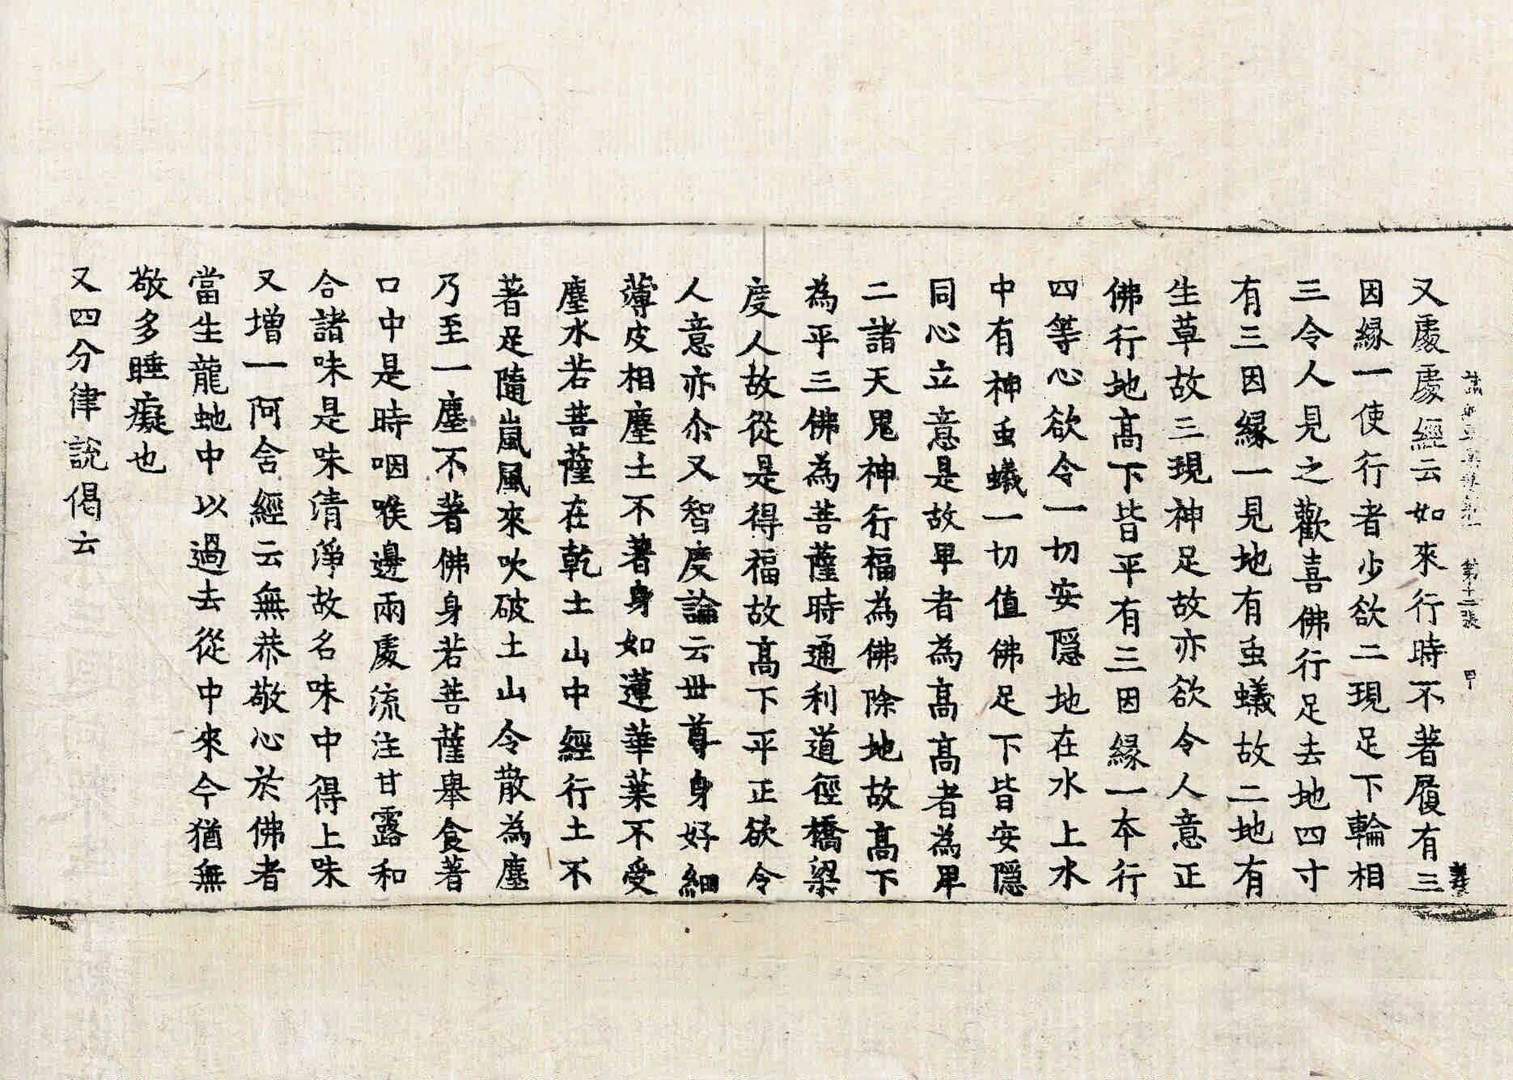 第十二張 甲
又處處經云如來行時不著履有三
因縁一使行者少欲二現足下輪相
三令人見之歡喜佛行足去地四寸
有三因縁一見地有虫蟻故二地有
生草故三現神足故亦欲令人意正
佛行地髙下皆平有三因縁一本行
四等心欲令一切安隱地在水上水
中有神虫蟻一切值佛足下皆安隱
同心立意是故卑者為髙髙者為卑
二諸天鬼神行福為佛除地故髙下
為平三佛為菩薩時通利道徑橋梁
度人故從是得福故髙下平正欲令
人意亦尒又智度論云丗尊身好細
薄皮相塵土不著身如蓮華葉不受
塵水若菩薩在乾土山中經行土不
著足隨嵐風來吹破土山令散為塵
乃至一塵不著佛身若菩薩舉食著
口中是時咽喉邊兩處流注甘露和
合諸味是味清淨故名味中得上味
又增一阿含經云無恭敬心於佛者
當生龍虵中以過去從中來今猶無
敬多睡癡也
又四分律說偈云